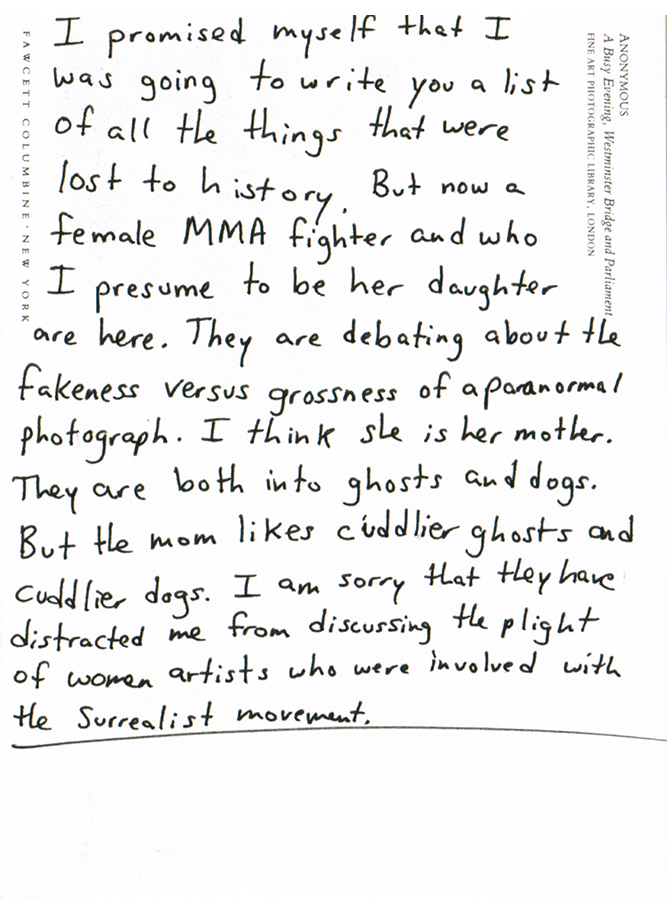 I promised myself that I
was going to write you a list
of all the things that were
lost to history. But now a
female MMA fighter and who
I presume to be her daughter
are here. They are debating about the
fakeness versus grossness of a paranormal
photograph. I think she is her mother.
They are both into ghosts and dogs.
But the mom likes cuddlier ghosts and
cuddlier dogs. I am sorry that they have
distracted me from discussing the plight
of women artists who were involved with
the Surrealist movement.
FAWCETT COLUMBINE · NEW YORK
ANONYMOUS
A Busy Evening, Westminster Bridge and Parliament
FINE ART PHOTOGRAPHIC LIBRARY, LONDON